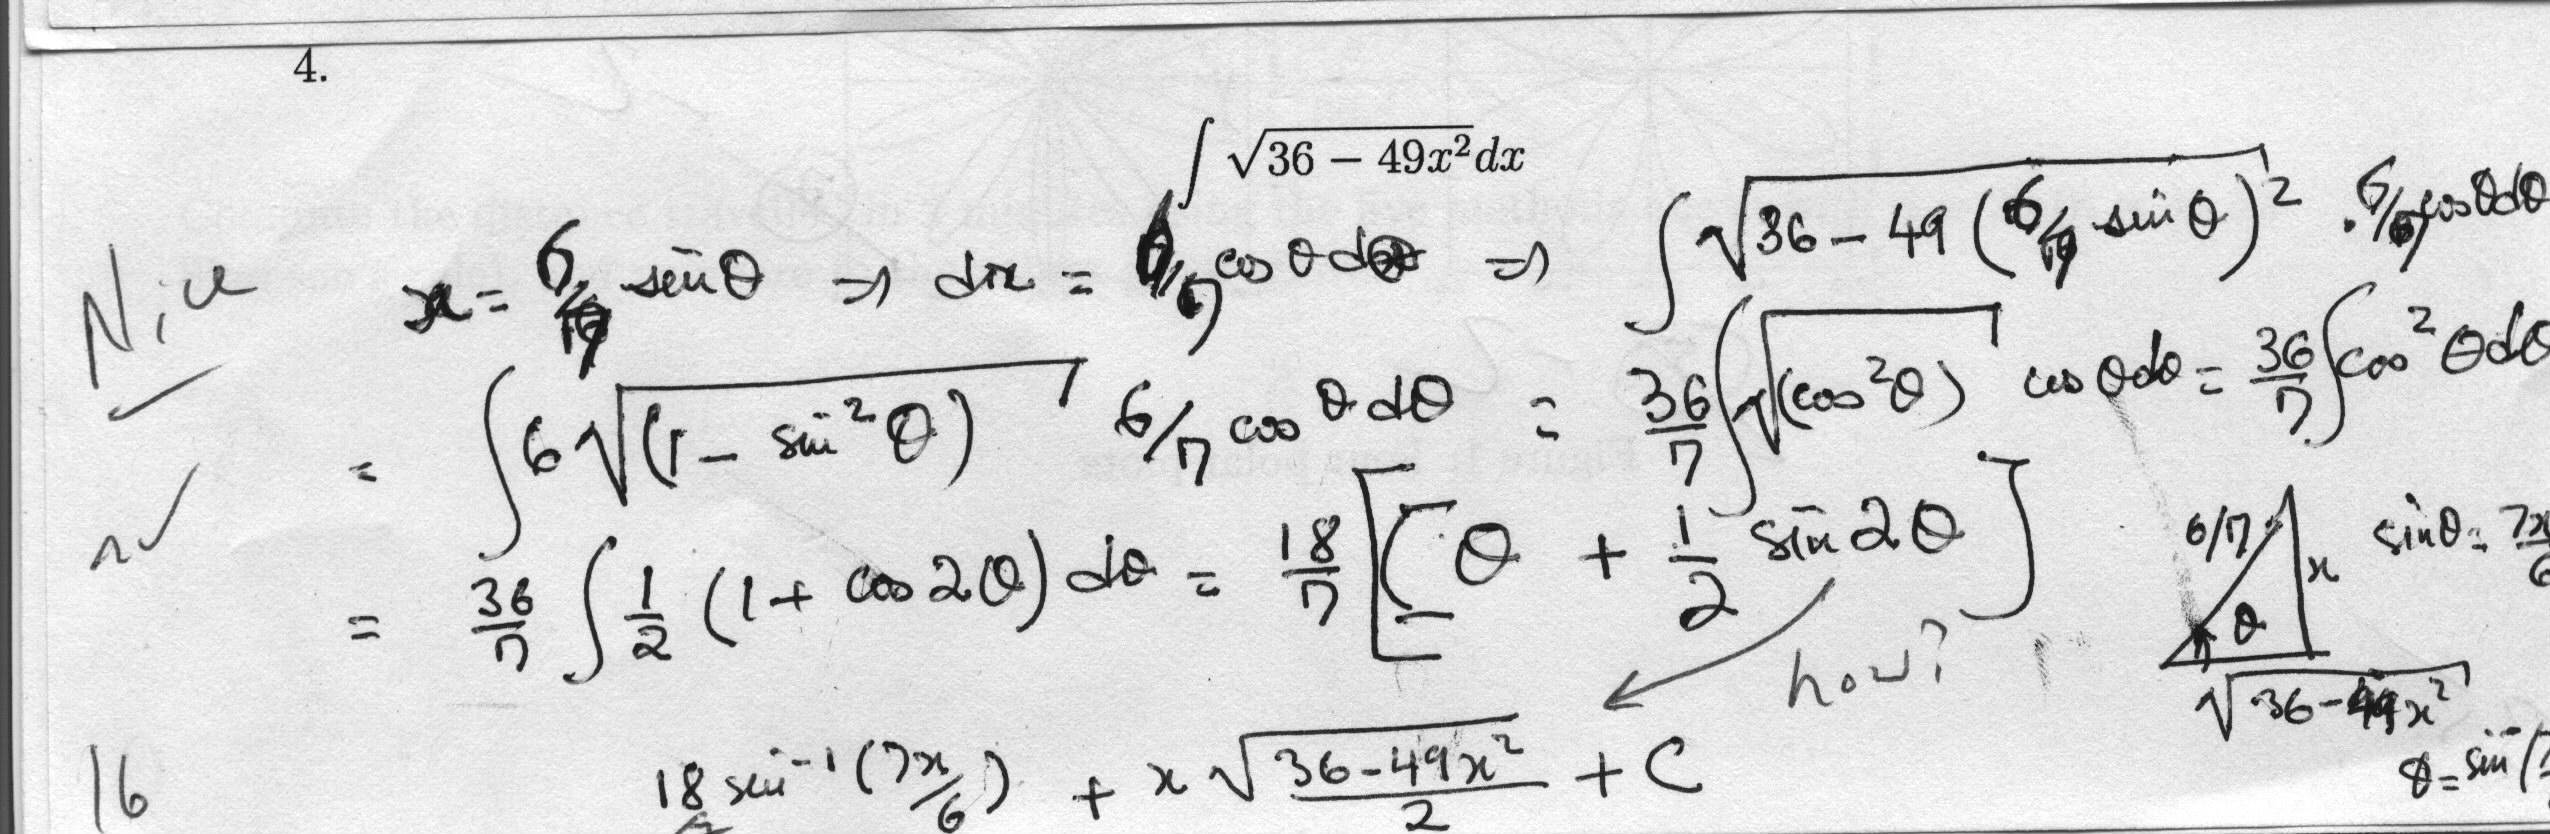 4.
∫ √36 − 49x² dx
Nice
x = 6/7 sin θ ⇒ dx = 6/7 cos θ dθ ⇒ ∫ √36 − 49 (6/7 sin θ)² · 6/7 cos θ dθ
= ∫ 6 √(1 − sin² θ) 6/7 cos θ dθ = 36/7 ∫ √(cos² θ) cos θ dθ = 36/7 ∫ cos² θ dθ
= 36/7 ∫ 1/2 (1 + cos 2θ) dθ = 18/7 [ θ + 1/2 sin 2θ ]
6/7 x θ sin θ = 7x/6
√36 − 49x²
how?
θ = sin⁻
16
18 sin⁻¹ (7x/6) + x √36 − 49x² / 2 + C